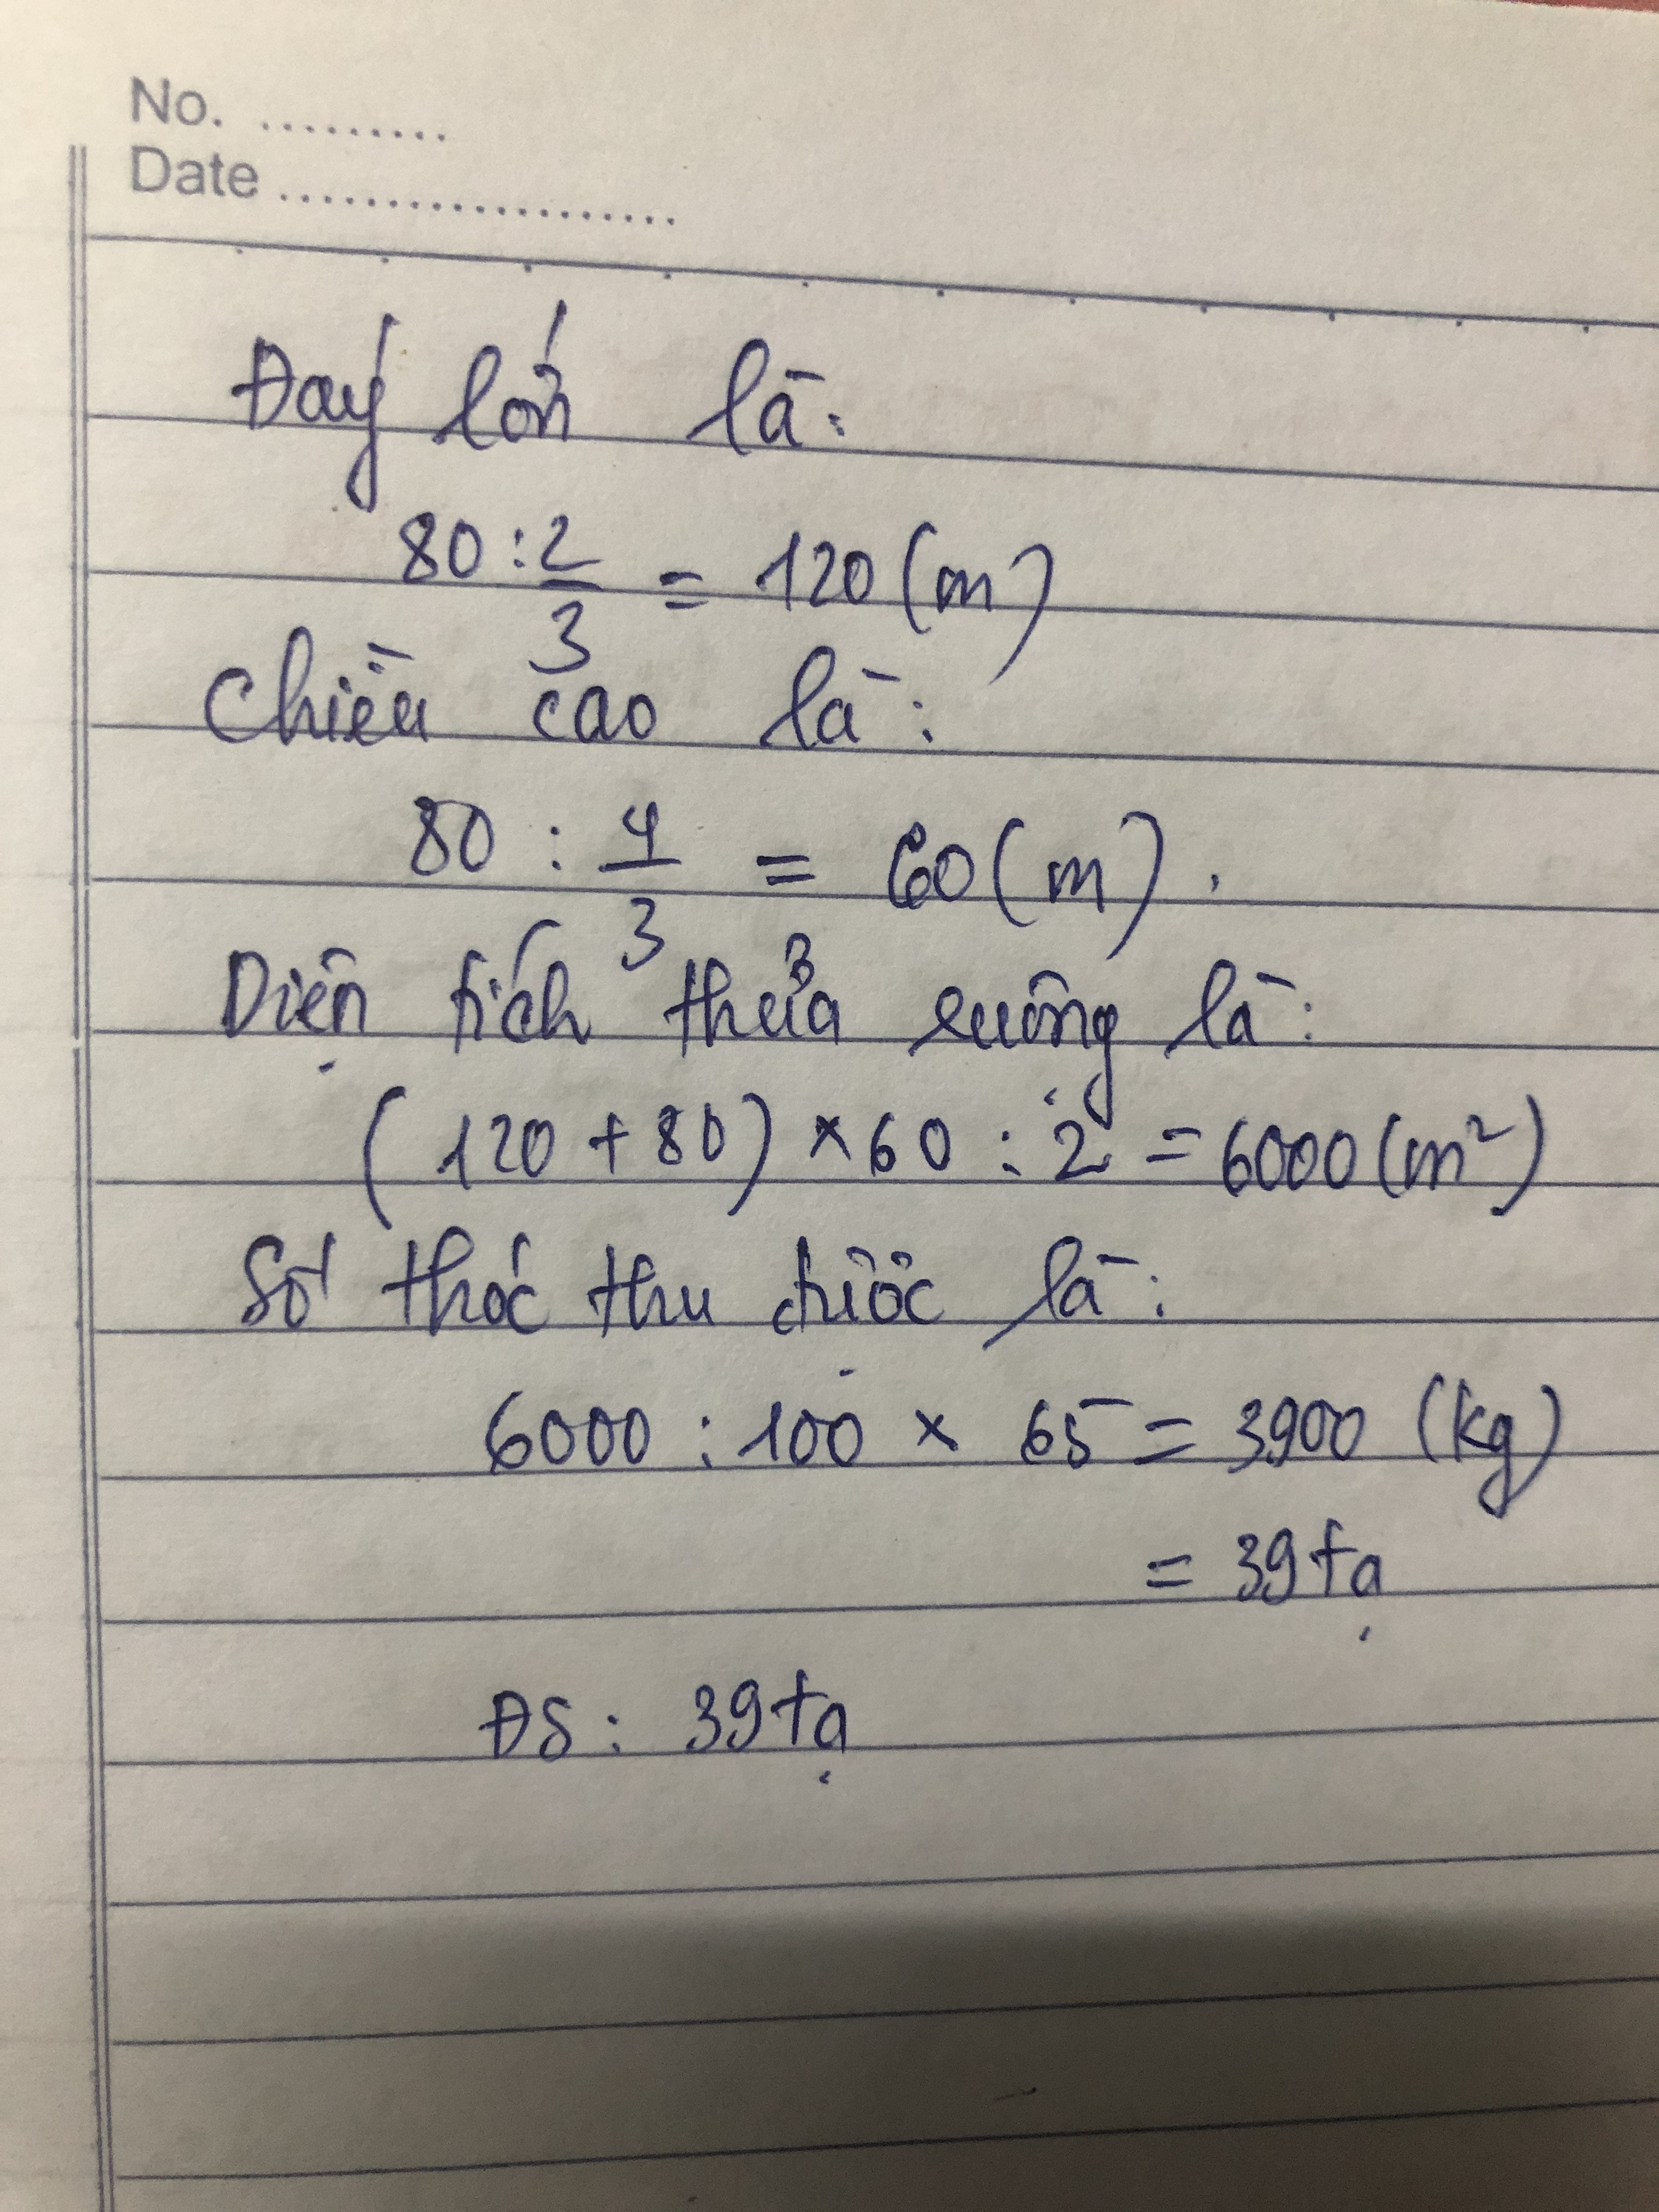 No. .........
Date ...................
Đáy lớn là:
80 : 2/3 = 120 (m)
Chiều cao là:
80 : 4/3 = 60 (m).
Diện tích thửa ruộng là:
(120 + 80) × 60 : 2 = 6000 (m²)
Số thóc thu được là:
6000 : 100 × 65 = 3900 (kg)
= 39 tạ
ĐS: 39 tạ